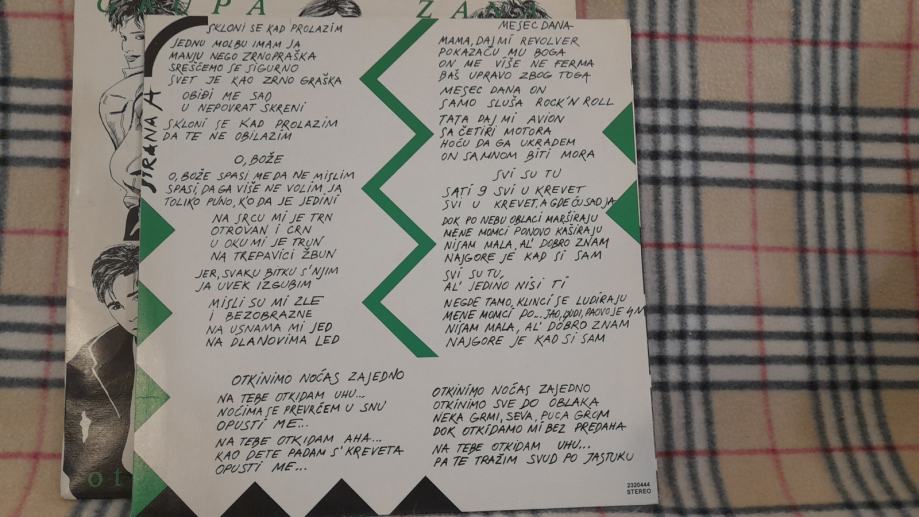 GRUPA ZANA
STRANA A
SKLONI SE KAD PROLAZIM
JEDNU MOLBU IMAM JA
MANJU NEGO ZRNO PRAŠKA
SREŠĆEMO SE SIGURNO
SVET JE KAO ZRNO GRAŠKA
OBIĐI ME SAD
U NEPOVRAT SKRENI
SKLONI SE KAD PROLAZIM
DA TE NE OBILAZIM
O, BOŽE
O, BOŽE SPASI ME DA NE MISLIM
SPASI, DA GA VIŠE NE VOLIM JA
TOLIKO PUNO, K'O DA JE JEDINI
NA SRCU MI JE TRN
OTROVAN I CRN
U OKU MI JE TRUN
NA TREPAVICI ŽBUN
JER, SVAKU BITKU S'NJIM
JA UVEK IZGUBIM
MISLI SU MI ZLE
I BEZOBRAZNE
NA USNAMA MI JED
NA DLANOVIMA LED
MESEC DANA
MAMA, DAJ MI REVOLVER
POKAZAĆU MU BOGA
ON ME VIŠE NE FERMA
BAŠ UPRAVO ZBOG TOGA
MESEC DANA ON
SAMO SLUŠA ROCK'N ROLL
TATA DAJ MI AVION
SA ČETIRI MOTORA
HOĆU DA GA UKRADEM
ON SA MNOM BITI MORA
SVI SU TU
SATI 9 SVI U KREVET
SVI U KREVET, A GDE ĆU SAD JA
DOK PO NEBU OBLACI MARŠIRAJU
MENE MOMCI PONOVO KAŠIRAJU
NISAM MALA, AL' DOBRO ZNAM
NAJGORE JE KAD SI SAM
SVI SU TU,
AL' JEDINO NISI TI
NEGDE TAMO, KLINCI SE LUDIRAJU
MENE MOMCI PO... JAO, LJUDI, PA OVO JE
NISAM MALA, AL' DOBRO ZNAM
NAJGORE JE KAD SI SAM
OTKINIMO NOĆAS ZAJEDNO
NA TEBE OTKIDAM UHU...
NOĆIMA SE PREVRĆEM U SNU
OPUSTI ME...
NA TEBE OTKIDAM AHA...
KAO DETE PADAM S' KREVETA
OPUSTI ME...
OTKINIMO NOĆAS ZAJEDNO
OTKINIMO SVE DO OBLAKA
NEKA GRMI, SEVA, PUCA GROM
DOK OTKIDAMO MI BEZ PREDAHA
NA TEBE OTKIDAM UHU...
PA TE TRAŽIM SVUD PO JASTUKU
2320444
STEREO
ot